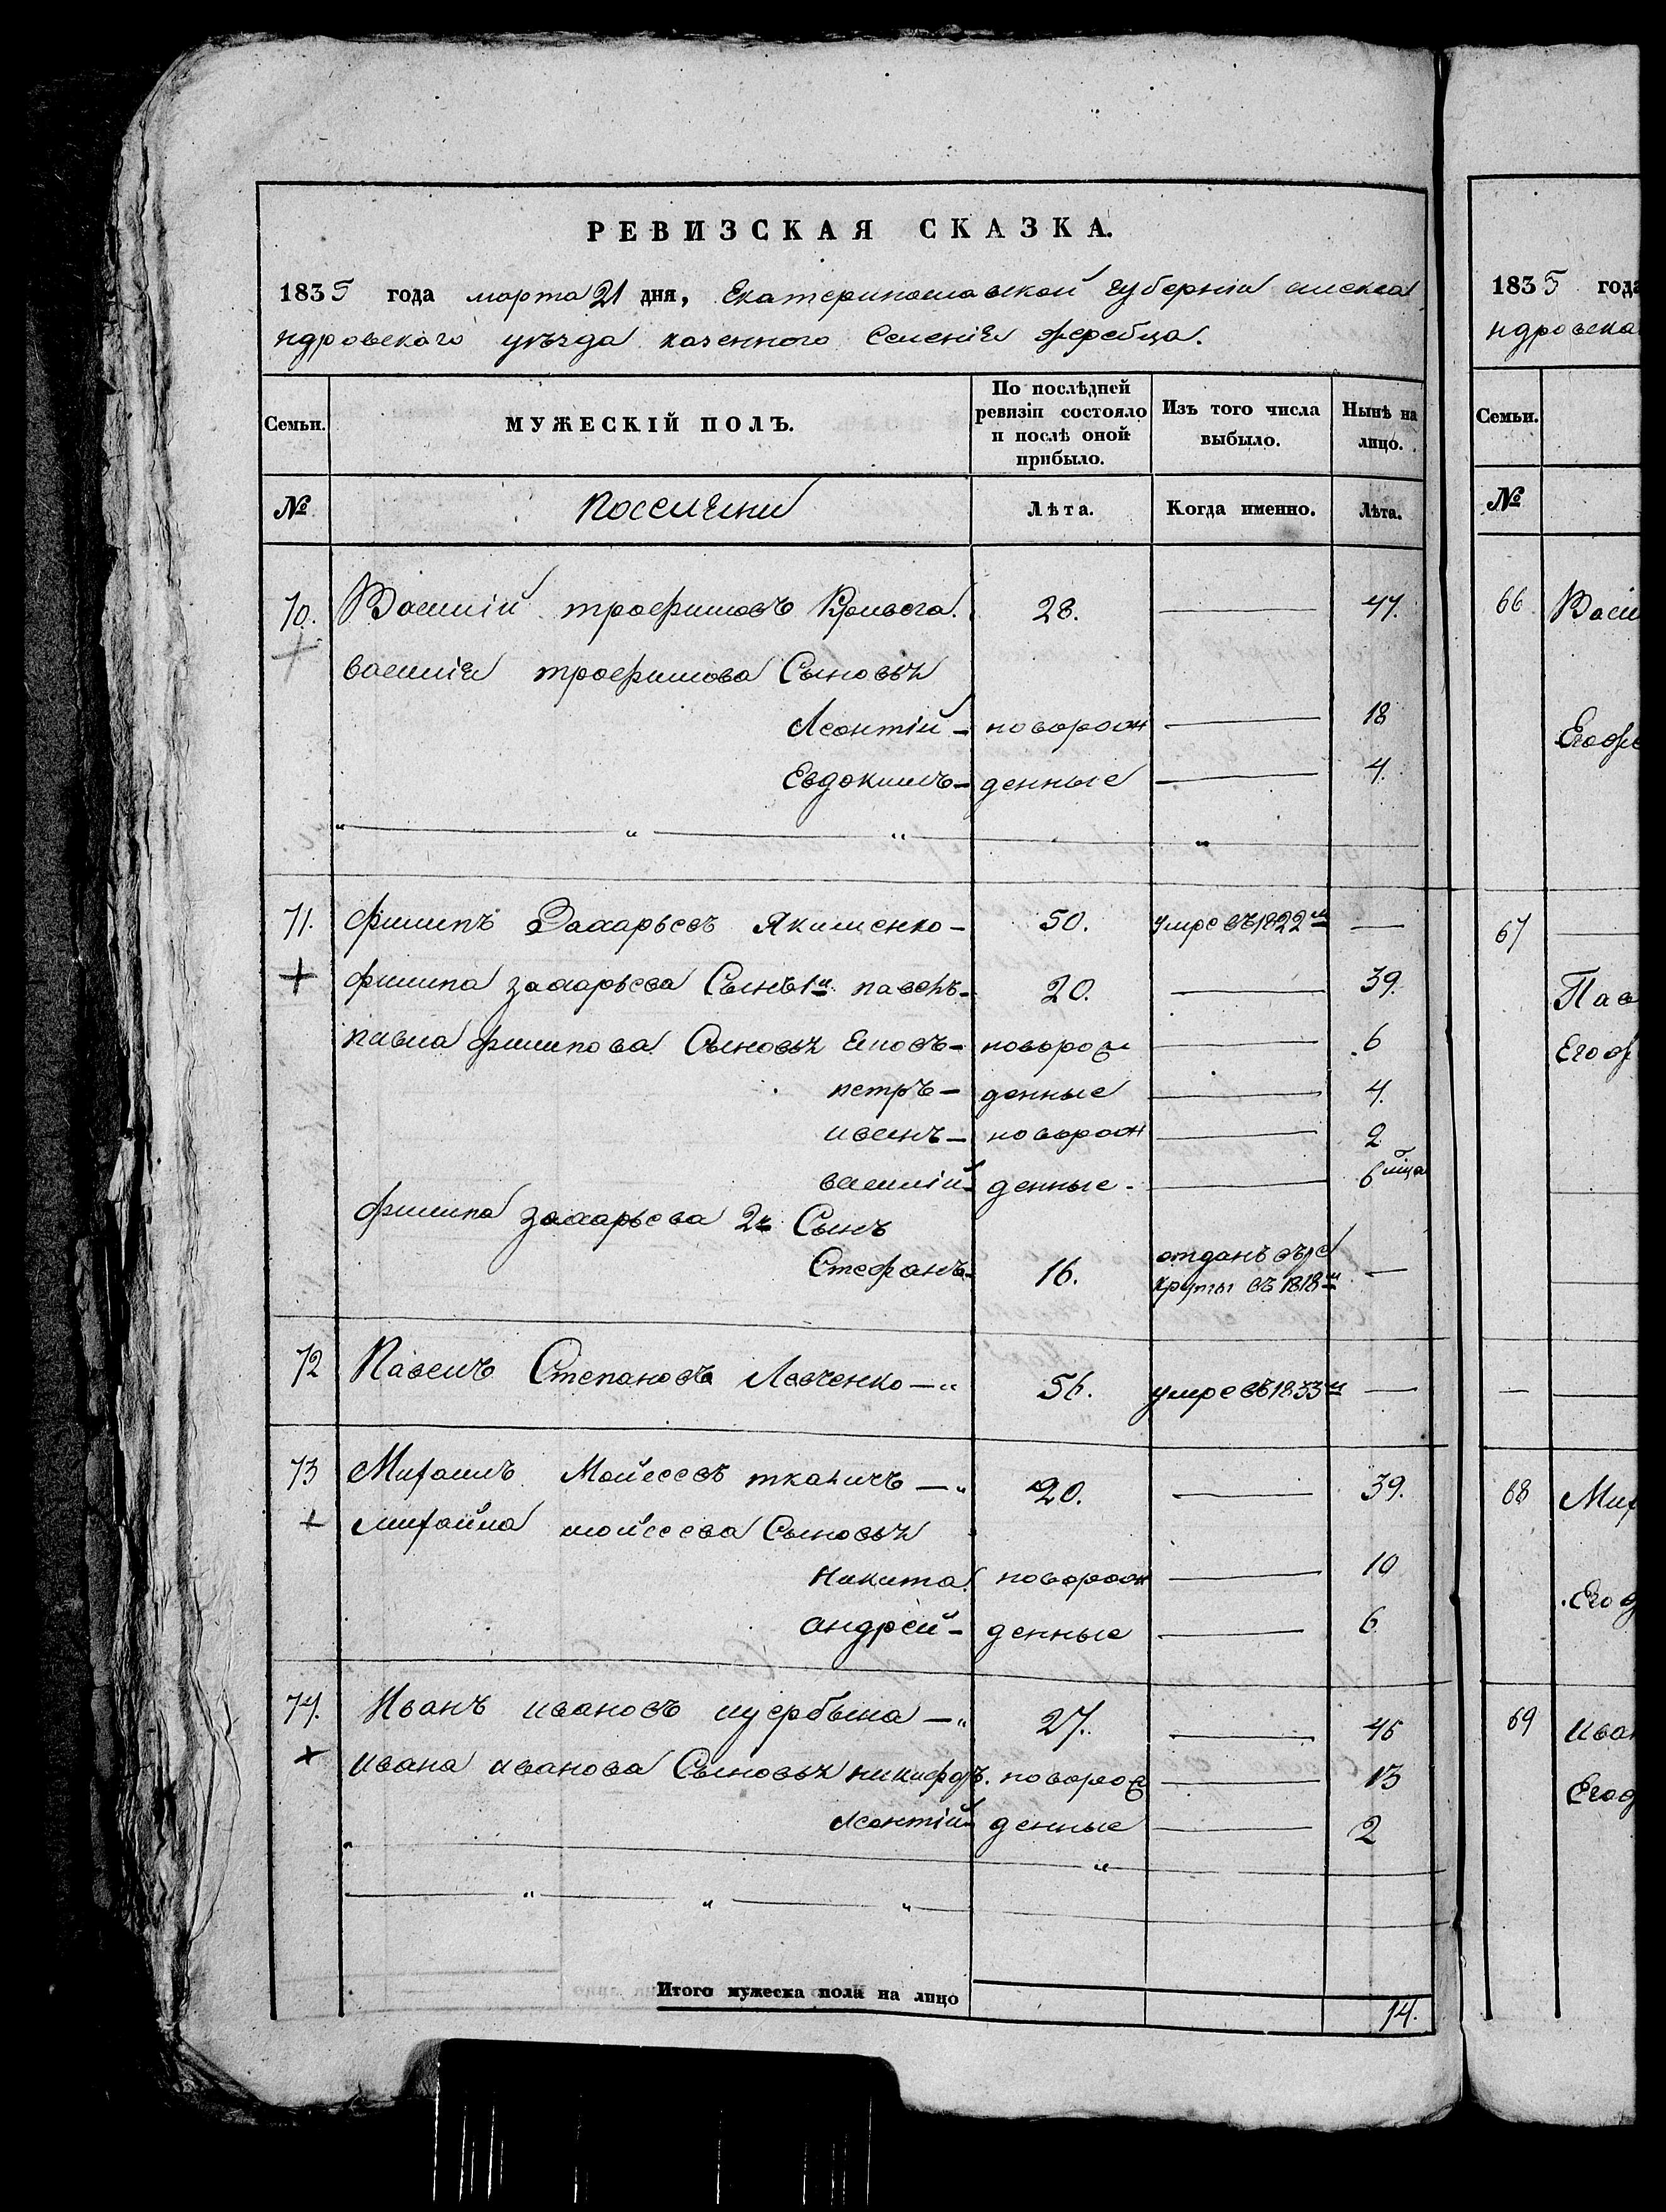 РЕВИЗСКАЯ СКАЗКА.
1835 года марта 21 дня, Екатеринославской губерніи алекса
ндровскаго уѣзда казенного Селенія Жеребца.
Семьи.
МУЖЕСКІЙ ПОЛЪ.
По послѣдней ревизіи состояло и послѣ оной прибыло.
Изъ того числа выбыло.
Нынѣ на лицо.
№
Поселяни
Лѣта.
Когда именно.
Лѣта.
70. Василій трофимовъ 28. — 47.
василія трофимова Сыновья
Леонтій - новорож — 18
Евдокимъ - денные — 4.
71. филипъ Захарьевъ Якименко - 50. умре въ 1822м —
+ филипа захарьева Сынъ 1й павелъ - 20. — 39.
павла филипова Сыновья - новорож — 6
петръ - денные — 4.
иванъ - новорож — 2
василій - денные - — 6 мцо
филипа захарьева 2й Сынъ
Стефанъ - 16. отданъ въ ре
круты въ 1818м —
72 Павелъ Степановъ Левченко — 56. умре въ 1833м —
73 Михаилъ Мойсеевъ ткаличъ — 20. — 39.
+ михайла мойсеева Сыновья
Никита новорож — 10
андрей - денные — 6
74. Иванъ ивановъ щербына — 27. — 46
+ ивана иванова Сыновья никифоръ. новорож — 13
леонтій денные — 2
Итого мужеска пола на лицо 14.
1835 года
ндровска
Семьи.
№
66 Васи
Егоже
67
Пав
Егож
68 Мих
Егож
69 иван
Егож